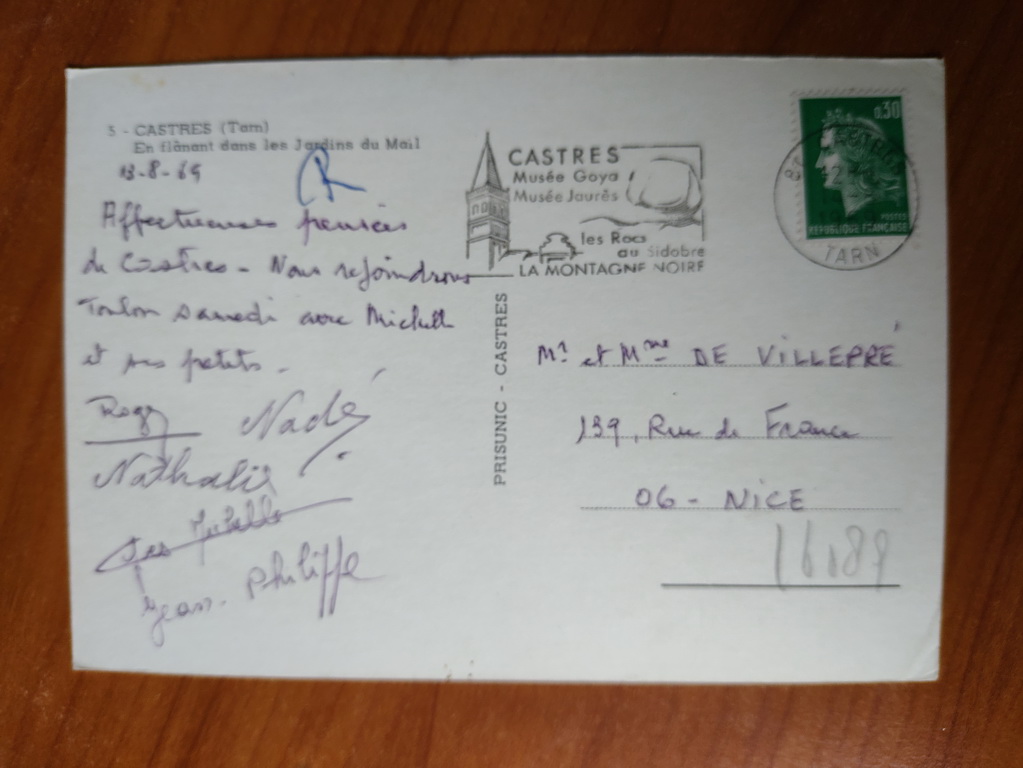 5 - CASTRES (Tarn)
En flânant dans les Jardins du Mail
13-8-69
R
Affectueuses pensées
de Castres - Nous rejoindrons
Toulon samedi avec
et ses petits -
Nadé
Nathalie
Jean-Philippe
PRISUNIC - CASTRES
CASTRES
Musée Goya
Musée Jaurès
les Rocs
du Sidobre
LA MONTAGNE NOIRE
0,30
POSTES
REPUBLIQUE FRANÇAISE
TARN
Mr et Mme DE VILLEPRÉ
139, Rue de France
06 - NICE
16189